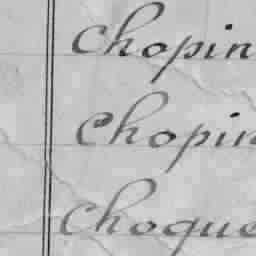 Chopin
Chopin
Choque